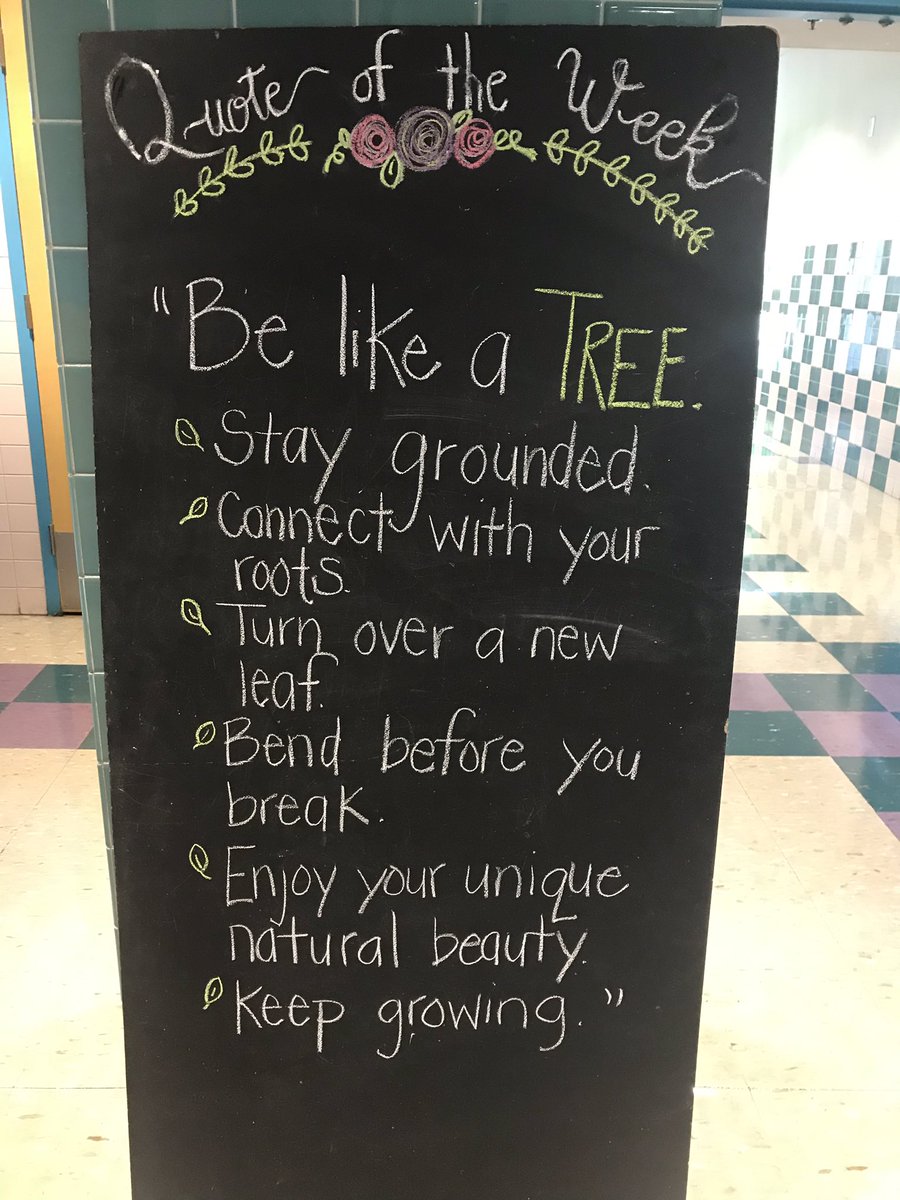 Quote of the Week
"Be like a TREE.
Stay grounded.
Connect with your
roots.
Turn over a new
leaf.
Bend before you
break.
Enjoy your unique
natural beauty.
Keep growing."